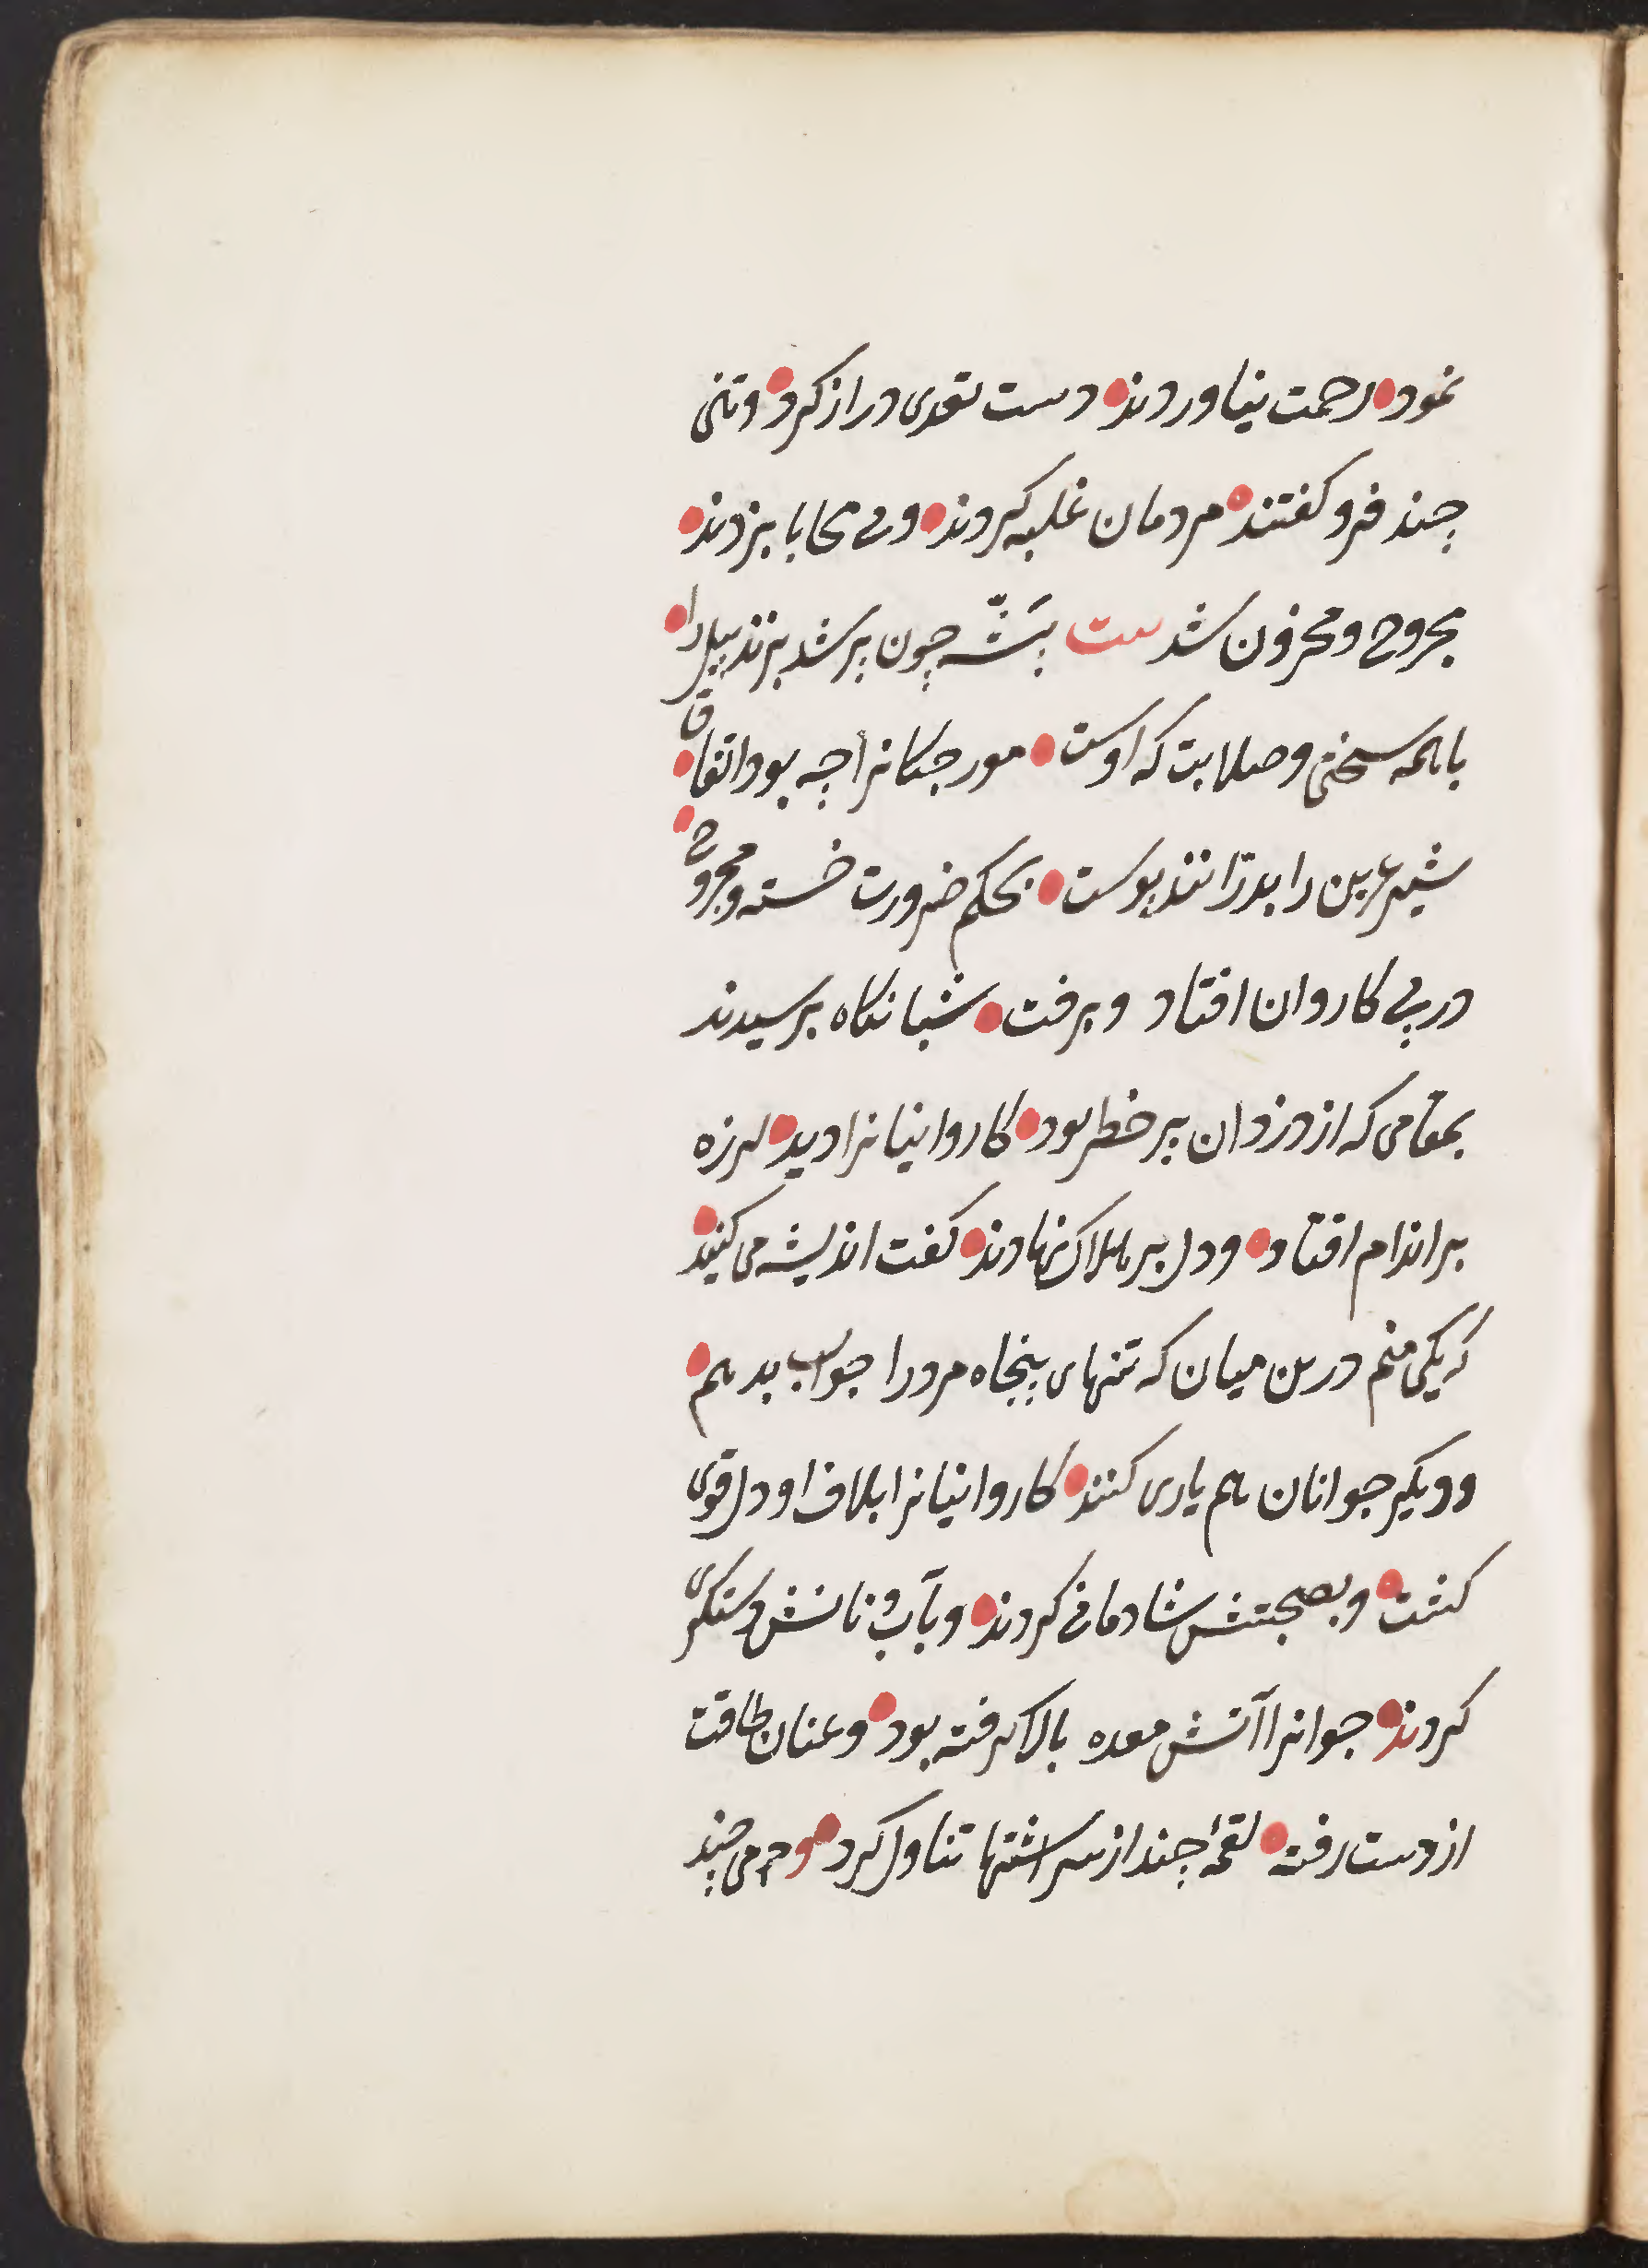 نمود • رحمت نیاوردند • دست تعدی دراز کرد • و تنی
چند فرو کفتند • مردمان غلبه کردند • و بی محابا بزدند •
مجروح و محزون شد بیت پشّه چون پر شد بزند پیل را •
با همه سختی و صلابت که اوست • مورچکانرا چه بود اتفاق •
شیر عرین را بدرّانند پوست • بحکم ضرورت خسته و مجروح •
در پی کاروان افتاد و برفت • شبانکاه برسیدند
بمقامی که از دزدان پر خطر بود • کاروانیانرا دید • لرزه
بر اندام افتاد • و دل بر هلاک نهادند • کفت اندیشه می کنید •
که یکی منم درین میان که تنهای پنجاه مرد را جواب بدهم •
و دیکر جوانان هم یاری کنند • کاروانیانرا بلاف او دل قوی
کشت • و بصحبتش شادمانی کردند • و بآب و نانش دستکیری
کردند • جوانرا آتش معده بالا کرفته بود • و عنان طاقت
از دست رفته • لقمهٔ چند از سر اشتها تناول کرد • و دمی چند